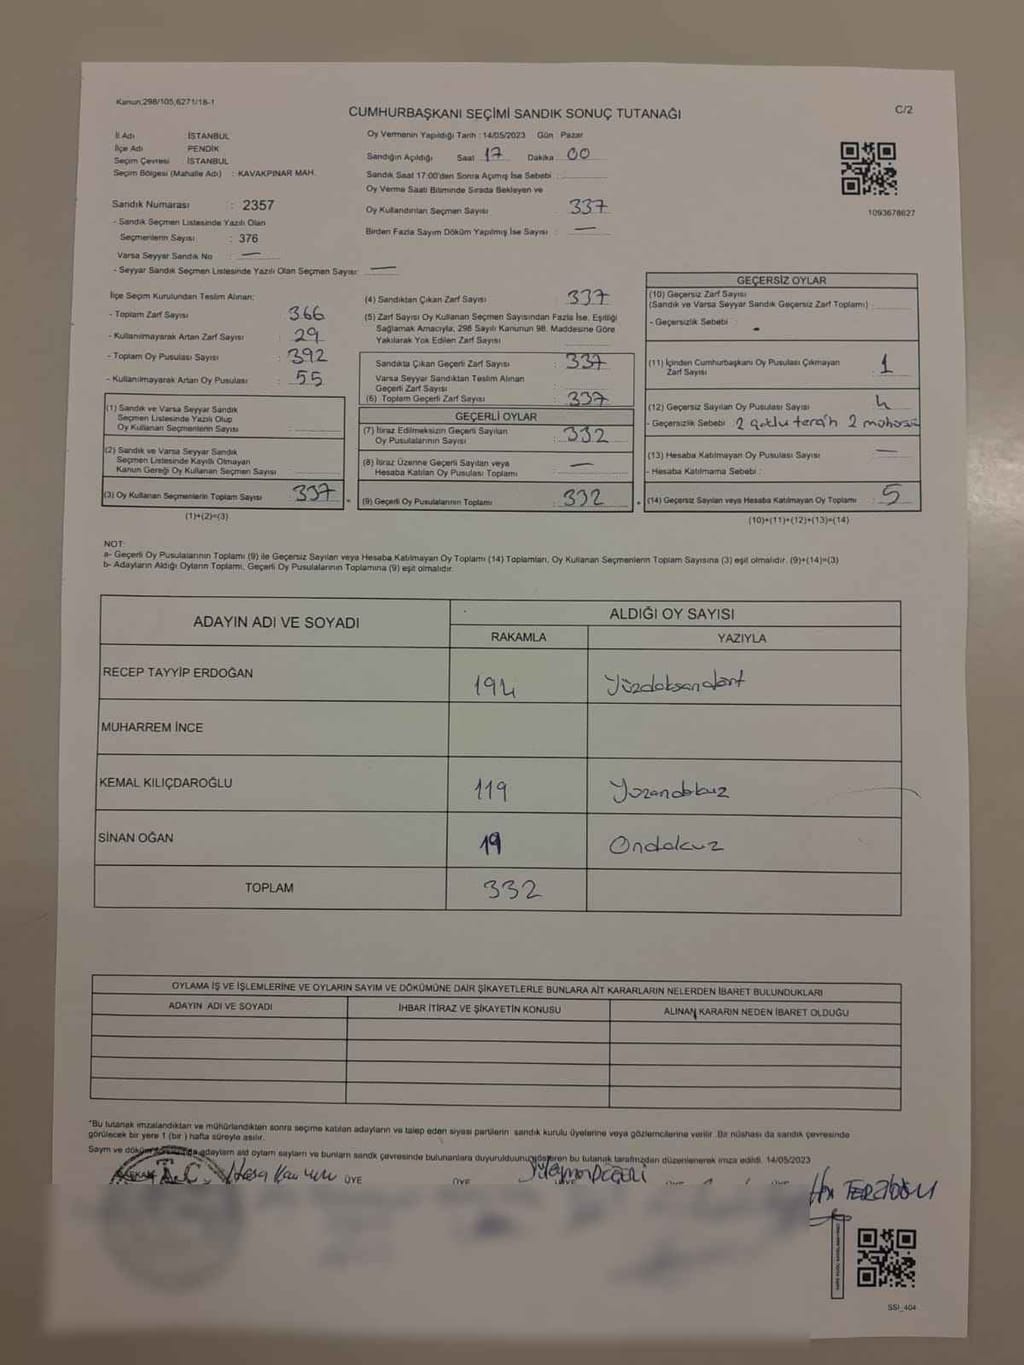 Kanun;298/105,6271/18-1
CUMHURBAŞKANI SEÇİMİ SANDIK SONUÇ TUTANAĞI
C/2
İl Adı İSTANBUL
İlçe Adı PENDİK
Seçim Çevresi İSTANBUL
Seçim Bölgesi (Mahalle Adı) : KAVAKPINAR MAH.
Sandık Numarası : 2357
- Sandık Seçmen Listesinde Yazılı Olan
Seçmenlerin Sayısı : 376
Varsa Seyyar Sandık No : —
- Seyyar Sandık Seçmen Listesinde Yazılı Olan Seçmen Sayısı: —
Oy Vermenin Yapıldığı Tarih : 14/05/2023 Gün Pazar
Sandığın Açıldığı Saat 17 Dakika 00
Sandık Saat 17:00'den Sonra Açımış İse Sebebi :
Oy Verme Saati Bitiminde Sırada Bekleyen ve
Oy Kullandırılan Seçmen Sayısı 337
Birden Fazla Sayım Döküm Yapılmış İse Sayısı : —
1093678627
İlçe Seçim Kurulundan Teslim Alınan;
- Toplam Zarf Sayısı : 366
- Kullanılmayarak Artan Zarf Sayısı : 29
- Toplam Oy Pusulası Sayısı : 392
- Kullanılmayarak Artan Oy Pusulası : 55
(1) Sandık ve Varsa Seyyar Sandık
Seçmen Listesinde Yazılı Olup
Oy Kullanan Seçmenlerin Sayısı
(2) Sandık ve Varsa Seyyar Sandık
Seçmen Listesinde Kayıtlı Olmayan
Kanun Gereği Oy Kullanan Seçmen Sayısı
(3) Oy Kullanan Seçmenlerin Toplam Sayısı 337
(1)+(2)=(3)
(4) Sandıktan Çıkan Zarf Sayısı : 337
(5) Zarf Sayısı Oy Kullanan Seçmen Sayısından Fazla İse, Eşitliği
Sağlamak Amacıyla, 298 Sayılı Kanunun 98. Maddesine Göre
Yakılarak Yok Edilen Zarf Sayısı
Sandıkta Çıkan Geçerli Zarf Sayısı : 337
Varsa Seyyar Sandıktan Teslim Alınan
Geçerli Zarf Sayısı
(6) Toplam Geçerli Zarf Sayısı : 337
GEÇERLİ OYLAR
(7) İtiraz Edilmeksizin Geçerli Sayılan
Oy Pusulalarının Sayısı : 332
(8) İtiraz Üzerine Geçerli Sayılan veya
Hesaba Katılan Oy Pusulası Toplamı : —
(9) Geçerli Oy Pusulalarının Toplamı : 332
GEÇERSİZ OYLAR
(10) Geçersiz Zarf Sayısı
(Sandık ve Varsa Seyyar Sandık Geçersiz Zarf Toplamı) :
- Geçersizlik Sebebi :
(11) İçinden Cumhurbaşkanı Oy Pusulası Çıkmayan
Zarf Sayısı : 1
(12) Geçersiz Sayılan Oy Pusulası Sayısı : 4
- Geçersizlik Sebebi : 2 çoklu tercih 2
(13) Hesaba Katılmayan Oy Pusulası Sayısı : —
- Hesaba Katılmama Sebebi :
(14) Geçersiz Sayılan veya Hesaba Katılmayan Oy Toplamı : 5
(10)+(11)+(12)+(13)=(14)
NOT:
a- Geçerli Oy Pusulalarının Toplamı (9) ile Geçersiz Sayılan veya Hesaba Katılmayan Oy Toplamı (14) Toplamları, Oy Kullanan Seçmenlerin Toplam Sayısına (3) eşit olmalıdır. (9)+(14)=(3)
b- Adayların Aldığı Oyların Toplamı, Geçerli Oy Pusulalarının Toplamına (9) eşit olmalıdır.
ADAYIN ADI VE SOYADI
ALDIĞI OY SAYISI
RAKAMLA YAZIYLA
RECEP TAYYİP ERDOĞAN 194 Yüzdoksandört
MUHARREM İNCE
KEMAL KILIÇDAROĞLU 119 Yüzondokuz
SİNAN OĞAN 19 Ondokuz
TOPLAM 332
OYLAMA İŞ VE İŞLEMLERİNE VE OYLARIN SAYIM VE DÖKÜMÜNE DAİR ŞİKAYETLERLE BUNLARA AİT KARARLARIN NELERDEN İBARET BULUNDUKLARI
ADAYIN ADI VE SOYADI İHBAR İTİRAZ VE ŞİKAYETİN KONUSU ALINAN KARARIN NEDEN İBARET OLDUĞU
*Bu tutanak imzalandıktan ve mühürlendikten sonra seçime katılan adayların ve talep eden siyasi partilerin sandık kurulu üyelerine veya gözlemcilerine verilir. Bir nüshası da sandık çevresinde
görülecek bir yere 1 (bir ) hafta süreyle asılır.
Sayım ve adayların ald oyların sayıları ve bunların sandık çevresinde bulunanlara duyurulduğunu gösteren bu tutanak tarafımızdan düzenlenerek imza edildi. 14/05/2023
T.C. ÜYE ÜYE
SSI_404